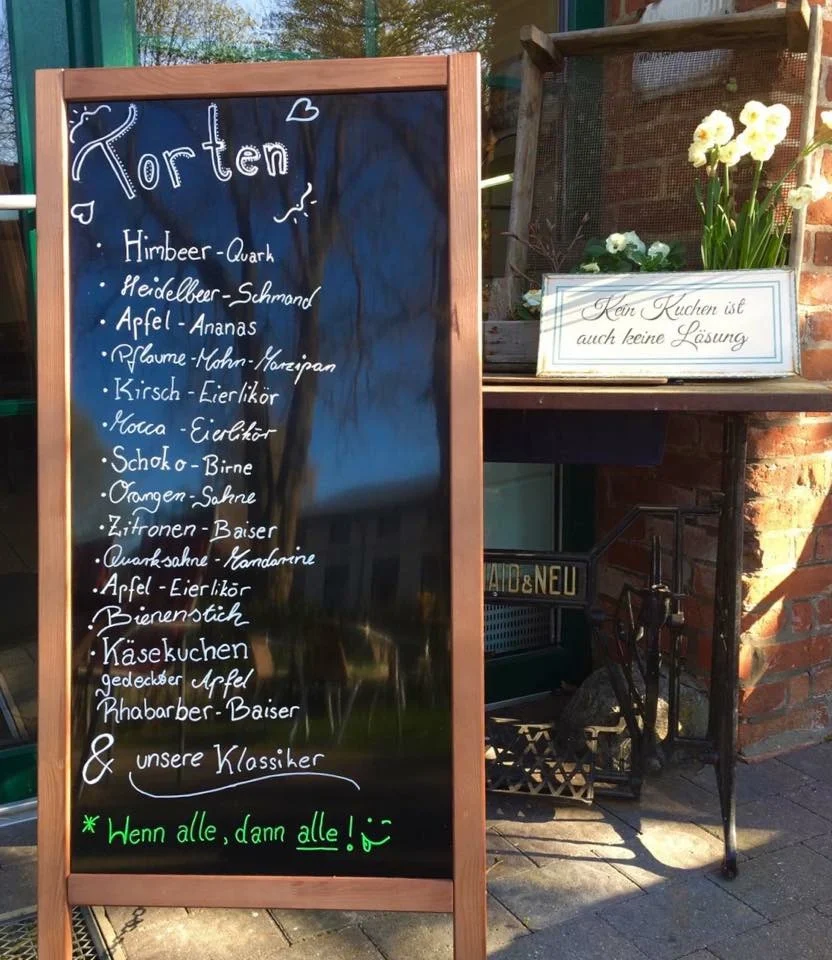 Torten
• Himbeer-Quark
• Heidelbeer-Schmand
• Apfel-Ananas
• Pflaume-Mohn-Marzipan
• Kirsch-Eierlikör
• Mocca-Eierlikör
• Schoko-Birne
• Orangen-Sahne
• Zitronen-Baiser
• Quarksahne-Mandarine
• Apfel-Eierlikör
• Bienenstich
• Käsekuchen
gedeckter Apfel
Rhabarber-Baiser
& unsere Klassiker
* Wenn alle, dann alle!
Kein Kuchen ist
auch keine Lösung
AID&NEU